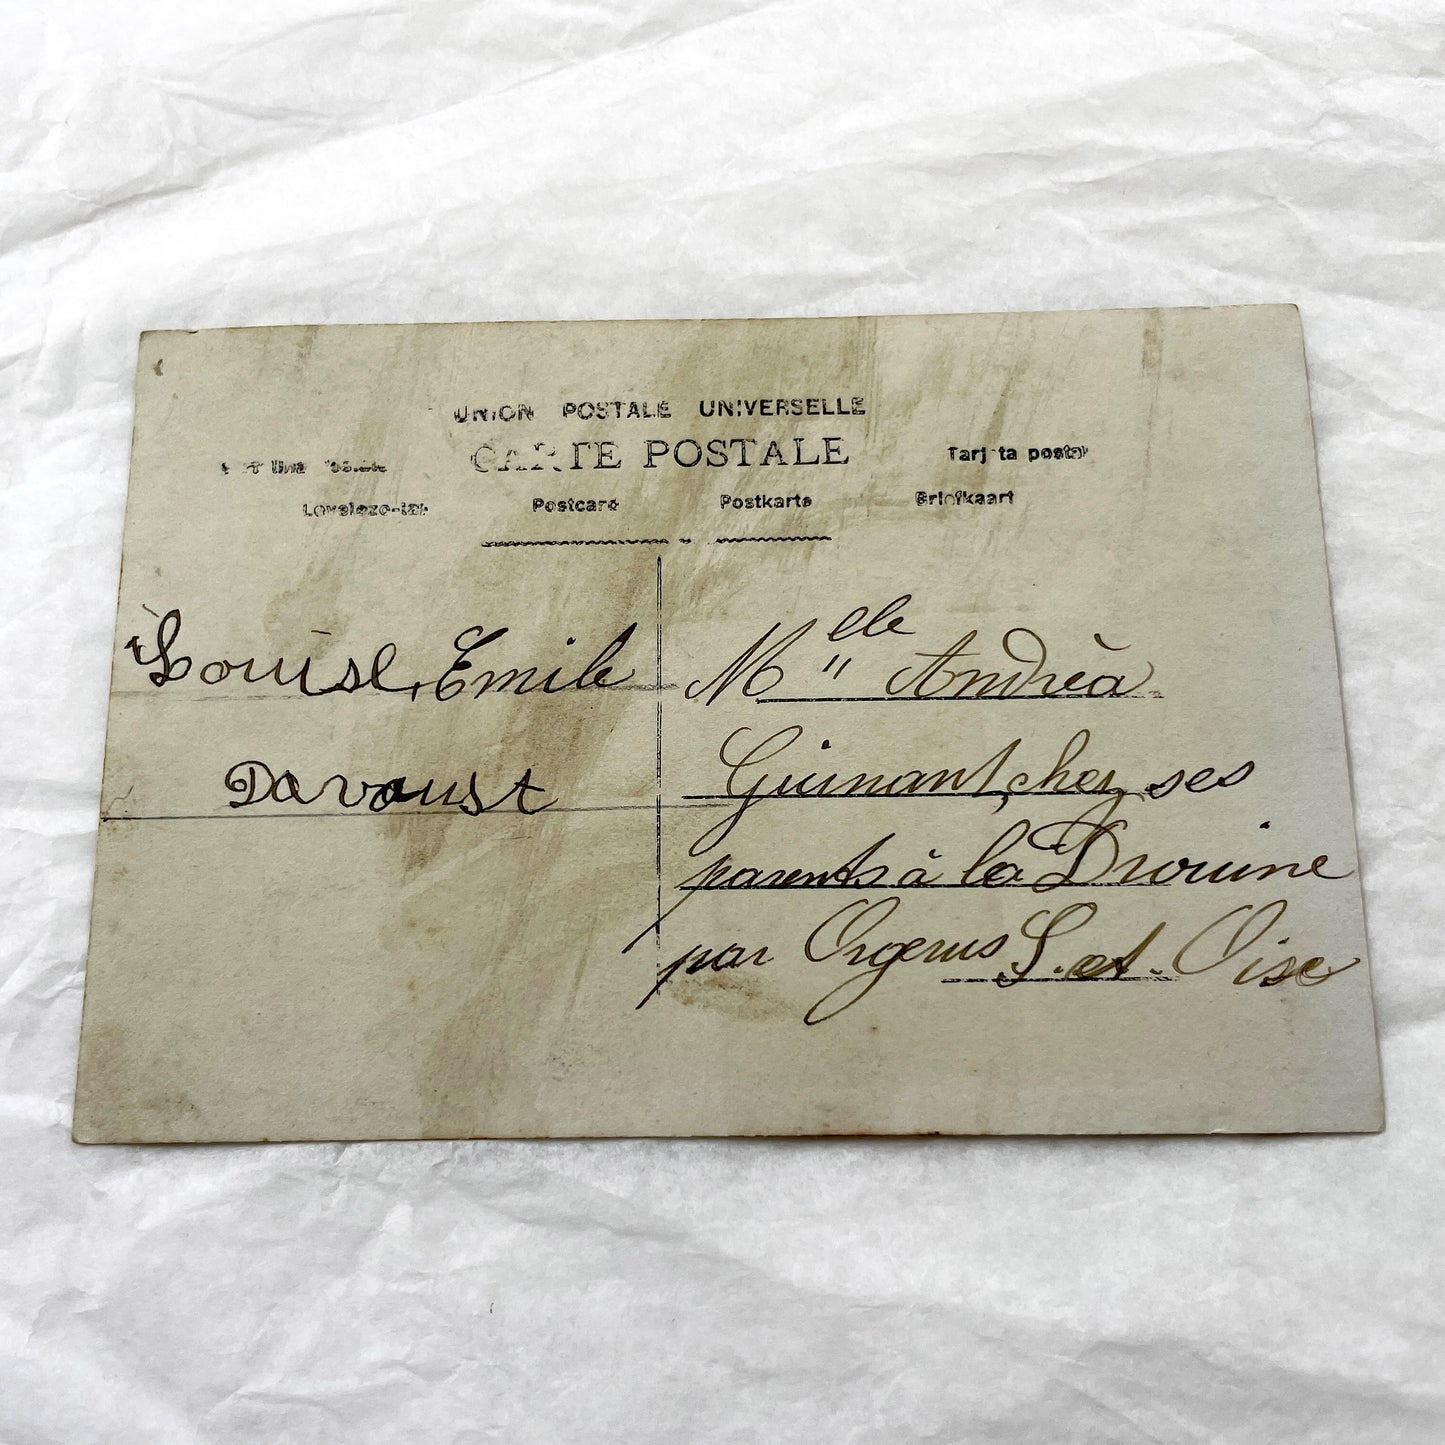 UNION POSTALE UNIVERSELLE
CARTE POSTALE
Tarjeta postal
Levelezo-lap Postcard Postkarte Briefkaart
Louise, Emile
Davoust
Mlle Andrèa
Guinant, chez ses
parents à la Drouine
par Orgerus S. et. Oise